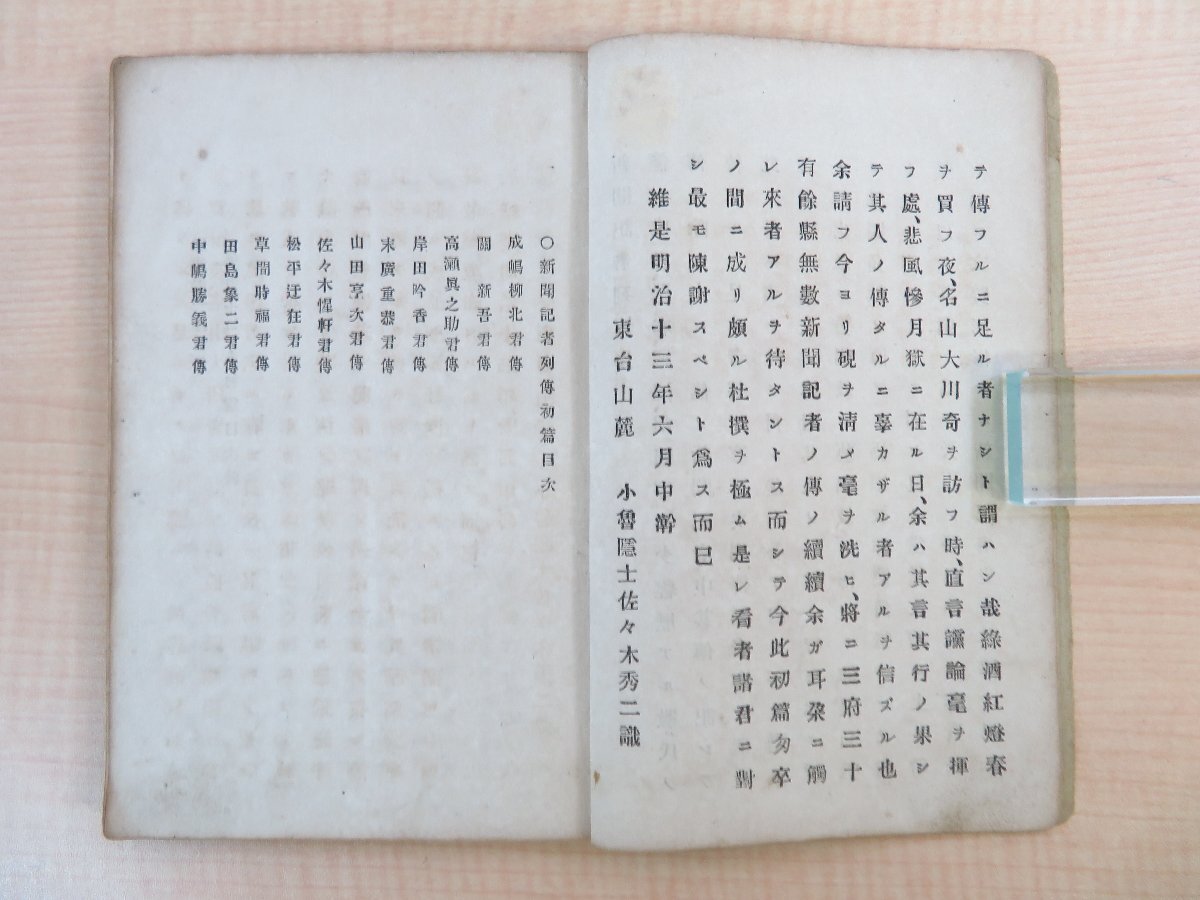 テ傳フルニ足ル者ナシト謂ハン哉綠酒紅燈春
ヲ買フ夜、名山大川奇ヲ訪フ時、直言讜論毫ヲ揮
フ處、悲風慘月獄ニ在ル日、余ハ其言其行ノ果シ
テ其人ノ傳タルニ辜カザル者アルヲ信ズル也
余請フ今ヨリ硯ヲ淸メ毫ヲ洗ヒ、將ニ三府三十
有餘縣無數新聞記者ノ傳ノ續續余ガ耳朶ニ觸
レ來者アルヲ待タントス而シテ今此初篇匆卒
ノ間ニ成リ頗ル杜撰ヲ極ム是レ看者諸君ニ對
シ最モ陳謝スベシト爲ス而已
維是明治十三年六月中澣
東台山麓　小魯隱士佐々木秀二識
〇新聞記者列傳初篇目次
成嶋柳北君傳
關　新吾君傳
高瀬眞之助君傳
岸田吟香君傳
末廣重恭君傳
山田享次君傳
佐々木惺軒君傳
松平迂狂君傳
草間時福君傳
田島象二君傳
中嶋勝義君傳